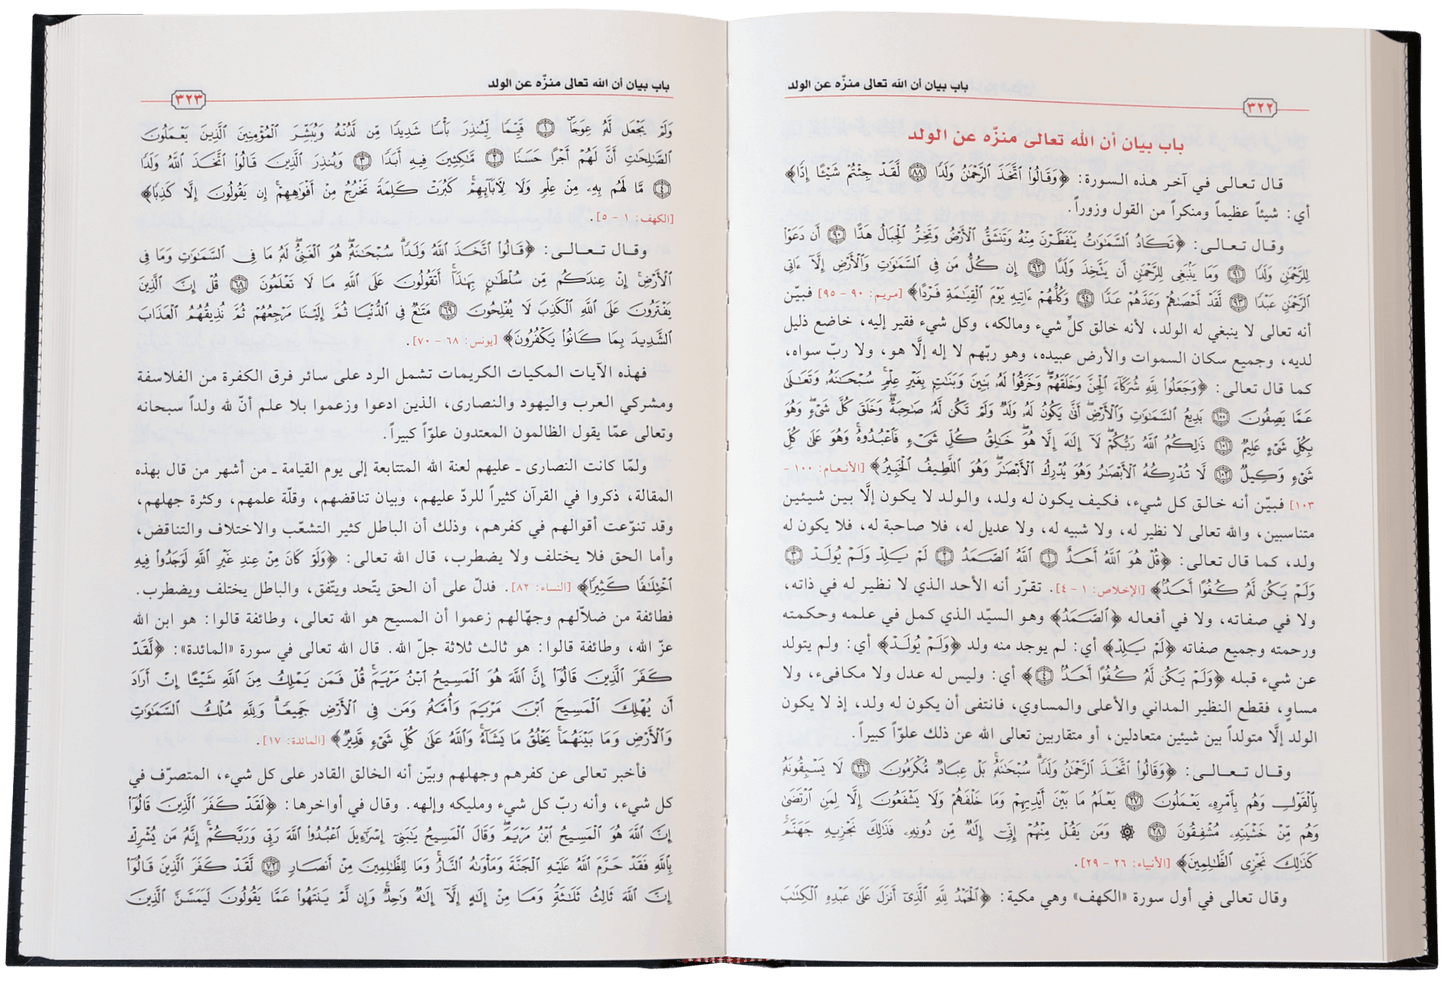 باب بيان أن الله تعالى منزّه عن الولد
٣٢٢
باب بيان أن الله تعالى منزّه عن الولد
قال تعالى في آخر هذه السورة: ﴿وَقَالُوا۟ ٱتَّخَذَ ٱلرَّحْمَٰنُ وَلَدًا ۝٨٨ لَّقَدْ جِئْتُمْ شَيْـًٔا إِدًّا﴾
أي: شيئاً عظيماً ومنكراً من القول وزوراً.
وقال تعالى: ﴿تَكَادُ ٱلسَّمَٰوَٰتُ يَتَفَطَّرْنَ مِنْهُ وَتَنشَقُّ ٱلْأَرْضُ وَتَخِرُّ ٱلْجِبَالُ هَدًّا ۝٩٠ أَن دَعَوْا۟
لِلرَّحْمَٰنِ وَلَدًا ۝٩١ وَمَا يَنۢبَغِى لِلرَّحْمَٰنِ أَن يَتَّخِذَ وَلَدًا ۝٩٢ إِن كُلُّ مَن فِى ٱلسَّمَٰوَٰتِ وَٱلْأَرْضِ إِلَّآ ءَاتِى
ٱلرَّحْمَٰنِ عَبْدًا ۝٩٣ لَّقَدْ أَحْصَىٰهُمْ وَعَدَّهُمْ عَدًّا ۝٩٤ وَكُلُّهُمْ ءَاتِيهِ يَوْمَ ٱلْقِيَٰمَةِ فَرْدًا﴾ [مريم: ٩٠ - ٩٥] فبيّن
أنه تعالى لا ينبغي له الولد، لأنه خالق كلِّ شيء ومالكه، وكل شيء فقير إليه، خاضع ذليل
لديه، وجميع سكان السموات والأرض عبيده، وهو ربّهم لا إله إلَّا هو، ولا ربّ سواه،
كما قال تعالى: ﴿وَجَعَلُوا۟ لِلَّهِ شُرَكَآءَ ٱلْجِنَّ وَخَلَقَهُمْ وَخَرَقُوا۟ لَهُۥ بَنِينَ وَبَنَٰتٍۭ بِغَيْرِ عِلْمٍ سُبْحَٰنَهُۥ وَتَعَٰلَىٰ
عَمَّا يَصِفُونَ ۝١٠٠ بَدِيعُ ٱلسَّمَٰوَٰتِ وَٱلْأَرْضِ أَنَّىٰ يَكُونُ لَهُۥ وَلَدٌ وَلَمْ تَكُن لَّهُۥ صَٰحِبَةٌ وَخَلَقَ كُلَّ شَىْءٍ وَهُوَ
بِكُلِّ شَىْءٍ عَلِيمٌ ۝١٠١ ذَٰلِكُمُ ٱللَّهُ رَبُّكُمْ لَآ إِلَٰهَ إِلَّا هُوَ خَٰلِقُ كُلِّ شَىْءٍ فَٱعْبُدُوهُ وَهُوَ عَلَىٰ كُلِّ
شَىْءٍ وَكِيلٌ ۝١٠٢ لَّا تُدْرِكُهُ ٱلْأَبْصَٰرُ وَهُوَ يُدْرِكُ ٱلْأَبْصَٰرَ وَهُوَ ٱللَّطِيفُ ٱلْخَبِيرُ﴾ [الأنعام: ١٠٠ -
١٠٣] فبيّن أنه خالق كل شيء، فكيف يكون له ولد، والولد لا يكون إلَّا بين شيئين
متناسبين، والله تعالى لا نظير له، ولا شبيه له، ولا عديل له، فلا صاحبة له، فلا يكون له
ولد، كما قال تعالى: ﴿قُلْ هُوَ ٱللَّهُ أَحَدٌ ۝١ ٱللَّهُ ٱلصَّمَدُ ۝٢ لَمْ يَلِدْ وَلَمْ يُولَدْ ۝٣
وَلَمْ يَكُن لَّهُۥ كُفُوًا أَحَدٌۢ﴾ [الإخلاص: ١ - ٤]. تقرّر أنه الأحد الذي لا نظير له في ذاته،
ولا في صفاته، ولا في أفعاله ﴿ٱلصَّمَدُ﴾ وهو السيّد الذي كمل في علمه وحكمته
ورحمته وجميع صفاته ﴿لَمْ يَلِدْ﴾ أي: لم يوجد منه ولد ﴿وَلَمْ يُولَدْ﴾ أي: ولم يتولد
عن شيء قبله ﴿وَلَمْ يَكُن لَّهُۥ كُفُوًا أَحَدٌۢ ۝٤﴾ أي: وليس له عدل ولا مكافىء، ولا
مساوٍ، فقطع النظير المداني والأعلى والمساوي، فانتفى أن يكون له ولد، إذ لا يكون
الولد إلَّا متولداً بين شيئين متعادلين، أو متقاربين تعالى الله عن ذلك علوّاً كبيراً.
وقال تعالى: ﴿وَقَالُوا۟ ٱتَّخَذَ ٱلرَّحْمَٰنُ وَلَدًا سُبْحَٰنَهُۥ بَلْ عِبَادٌ مُّكْرَمُونَ ۝٢٦ لَا يَسْبِقُونَهُۥ
بِٱلْقَوْلِ وَهُم بِأَمْرِهِۦ يَعْمَلُونَ ۝٢٧ يَعْلَمُ مَا بَيْنَ أَيْدِيهِمْ وَمَا خَلْفَهُمْ وَلَا يَشْفَعُونَ إِلَّا لِمَنِ ٱرْتَضَىٰ
وَهُم مِّنْ خَشْيَتِهِۦ مُشْفِقُونَ ۝٢٨ ۞ وَمَن يَقُلْ مِنْهُمْ إِنِّىٓ إِلَٰهٌ مِّن دُونِهِۦ فَذَٰلِكَ نَجْزِيهِ جَهَنَّمَ
كَذَٰلِكَ نَجْزِى ٱلظَّٰلِمِينَ﴾ [الأنبياء: ٢٦ - ٢٩].
وقال تعالى في أول سورة «الكهف» وهي مكية: ﴿ٱلْحَمْدُ لِلَّهِ ٱلَّذِىٓ أَنزَلَ عَلَىٰ عَبْدِهِ ٱلْكِتَٰبَ
باب بيان أن الله تعالى منزّه عن الولد
٣٢٣
وَلَمْ يَجْعَل لَّهُۥ عِوَجَا ۝١ قَيِّمًا لِّيُنذِرَ بَأْسًا شَدِيدًا مِّن لَّدُنْهُ وَيُبَشِّرَ ٱلْمُؤْمِنِينَ ٱلَّذِينَ يَعْمَلُونَ
ٱلصَّٰلِحَٰتِ أَنَّ لَهُمْ أَجْرًا حَسَنًا ۝٢ مَّٰكِثِينَ فِيهِ أَبَدًا ۝٣ وَيُنذِرَ ٱلَّذِينَ قَالُوا۟ ٱتَّخَذَ ٱللَّهُ وَلَدًا
۝٤ مَّا لَهُم بِهِۦ مِنْ عِلْمٍ وَلَا لِءَابَآئِهِمْ كَبُرَتْ كَلِمَةً تَخْرُجُ مِنْ أَفْوَٰهِهِمْ إِن يَقُولُونَ إِلَّا كَذِبًا﴾
[الكهف: ١ - ٥].
وقال تعالى: ﴿قَالُوا۟ ٱتَّخَذَ ٱللَّهُ وَلَدًا سُبْحَٰنَهُۥ هُوَ ٱلْغَنِىُّ لَهُۥ مَا فِى ٱلسَّمَٰوَٰتِ وَمَا فِى
ٱلْأَرْضِ إِنْ عِندَكُم مِّن سُلْطَٰنٍۭ بِهَٰذَآ أَتَقُولُونَ عَلَى ٱللَّهِ مَا لَا تَعْلَمُونَ ۝٦٨ قُلْ إِنَّ ٱلَّذِينَ
يَفْتَرُونَ عَلَى ٱللَّهِ ٱلْكَذِبَ لَا يُفْلِحُونَ ۝٦٩ مَتَٰعٌ فِى ٱلدُّنْيَا ثُمَّ إِلَيْنَا مَرْجِعُهُمْ ثُمَّ نُذِيقُهُمُ ٱلْعَذَابَ
ٱلشَّدِيدَ بِمَا كَانُوا۟ يَكْفُرُونَ﴾ [يونس: ٦٨ - ٧٠].
فهذه الآيات المكيات الكريمات تشمل الرد على سائر فرق الكفرة من الفلاسفة
ومشركي العرب واليهود والنصارى، الذين ادعوا وزعموا بلا علم أنّ لله ولداً سبحانه
وتعالى عمّا يقول الظالمون المعتدون علوّاً كبيراً.
ولمّا كانت النصارى ـ عليهم لعنة الله المتتابعة إلى يوم القيامة ـ من أشهر من قال بهذه
المقالة، ذكروا في القرآن كثيراً للردّ عليهم، وبيان تناقضهم، وقلّة علمهم، وكثرة جهلهم،
وقد تنوّعت أقوالهم في كفرهم، وذلك أن الباطل كثير التشعّب والاختلاف والتناقض،
وأما الحق فلا يختلف ولا يضطرب، قال الله تعالى: ﴿وَلَوْ كَانَ مِنْ عِندِ غَيْرِ ٱللَّهِ لَوَجَدُوا۟ فِيهِ
ٱخْتِلَٰفًا كَثِيرًا﴾ [النساء: ٨٢]. فدلّ على أن الحق يتّحد ويتّفق، والباطل يختلف ويضطرب.
فطائفة من ضلاّلهم وجهّالهم زعموا أن المسيح هو الله تعالى، وطائفة قالوا: هو ابن الله
عزّ الله، وطائفة قالوا: هو ثالث ثلاثة جلّ الله. قال الله تعالى في سورة «المائدة»: ﴿لَّقَدْ
كَفَرَ ٱلَّذِينَ قَالُوٓا۟ إِنَّ ٱللَّهَ هُوَ ٱلْمَسِيحُ ٱبْنُ مَرْيَمَ قُلْ فَمَن يَمْلِكُ مِنَ ٱللَّهِ شَيْـًٔا إِنْ أَرَادَ
أَن يُهْلِكَ ٱلْمَسِيحَ ٱبْنَ مَرْيَمَ وَأُمَّهُۥ وَمَن فِى ٱلْأَرْضِ جَمِيعًا وَلِلَّهِ مُلْكُ ٱلسَّمَٰوَٰتِ
وَٱلْأَرْضِ وَمَا بَيْنَهُمَا يَخْلُقُ مَا يَشَآءُ وَٱللَّهُ عَلَىٰ كُلِّ شَىْءٍ قَدِيرٌ﴾ [المائدة: ١٧].
فأخبر تعالى عن كفرهم وجهلهم وبيّن أنه الخالق القادر على كل شيء، المتصرّف في
كل شيء، وأنه ربّ كل شيء ومليكه وإلهه. وقال في أواخرها: ﴿لَقَدْ كَفَرَ ٱلَّذِينَ قَالُوٓا۟
إِنَّ ٱللَّهَ هُوَ ٱلْمَسِيحُ ٱبْنُ مَرْيَمَ وَقَالَ ٱلْمَسِيحُ يَٰبَنِىٓ إِسْرَٰٓءِيلَ ٱعْبُدُوا۟ ٱللَّهَ رَبِّى وَرَبَّكُمْ إِنَّهُۥ مَن يُشْرِكْ
بِٱللَّهِ فَقَدْ حَرَّمَ ٱللَّهُ عَلَيْهِ ٱلْجَنَّةَ وَمَأْوَىٰهُ ٱلنَّارُ وَمَا لِلظَّٰلِمِينَ مِنْ أَنصَارٍ ۝٧٢ لَّقَدْ كَفَرَ ٱلَّذِينَ قَالُوٓا۟
إِنَّ ٱللَّهَ ثَالِثُ ثَلَٰثَةٍ وَمَا مِنْ إِلَٰهٍ إِلَّآ إِلَٰهٌ وَٰحِدٌ وَإِن لَّمْ يَنتَهُوا۟ عَمَّا يَقُولُونَ لَيَمَسَّنَّ ٱلَّذِينَ